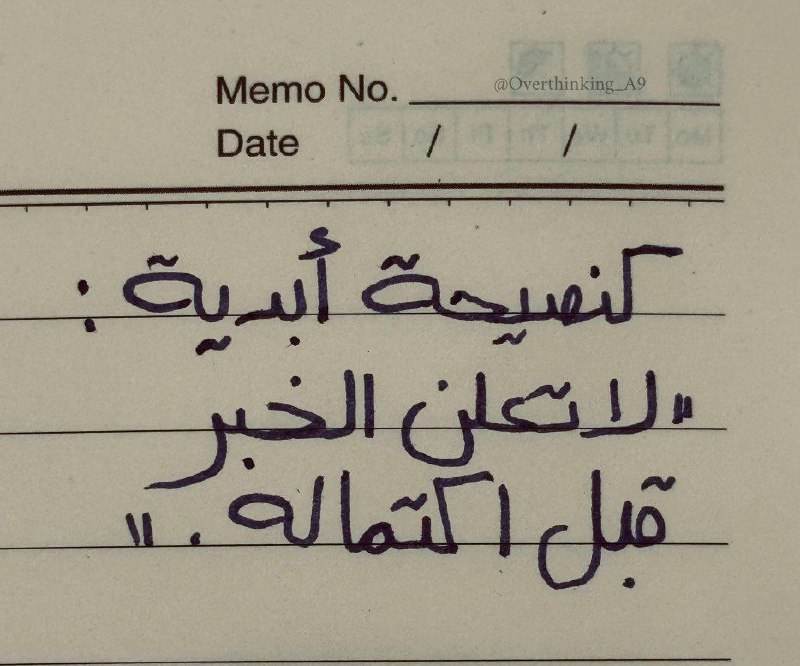 Memo No. @Overthinking_A9
Date / /
كنصيحة أبدية :
"لا تعلن الخبر
قبل اكتماله . "